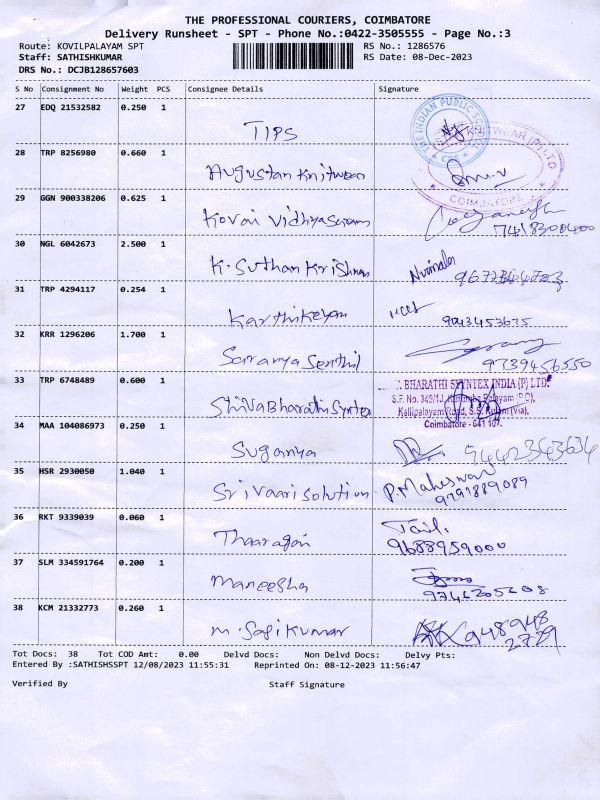 THE PROFESSIONAL COURIERS, COIMBATORE
Delivery Runsheet - SPT - Phone No.:0422-3505555 - Page No.:3
Route: KOVILPALAYAM SPT
RS No.: 1286576
Staff: SATHISHKUMAR
RS Date: 08-Dec-2023
DRS No.: DCJB128657603
S No Consignment No Weight PCS Consignee Details Signature
27 EDQ 21532582 0.250 1
TIPS
THE INDIAN PUBLIC
28 TRP 8256980 0.660 1
Augustan Knitwear
KNITWEAR (P) LTD
COIMBATORE
29 GGN 900338206 0.625 1
Kovai Vidhyasaram
7418300400
30 NGL 6042673 2.500 1
K. Suthan Krishnan
31 TRP 4294117 0.254 1
Karthikeyan
9043453675
32 KRR 1296206 1.700 1
Saranya Senthil
9739456550
33 TRP 6748489 0.600 1
Shiva Bharathi Syntex
BHARATHI SYNTEX INDIA (P) LTD.
S.F. No. 349/1J,
Kallipalayam Road, S.S. Kulam (Via),
Coimbatore - 641 107.
34 MAA 104086973 0.250 1
Suganya
9442343634
35 HSR 2930050 1.040 1
Sri Vaari Solution
P. Maheswari
9791889089
36 RKT 9339039 0.060 1
Thaaragai
9688959000
37 SLM 334591764 0.200 1
Maneesha
38 KCM 21332773 0.260 1
M. Sasi Kumar
948948
2729
Tot Docs: 38 Tot COD Amt: 0.00 Delvd Docs: Non Delvd Docs: Delvy Pts:
Entered By :SATHISHSSPT 12/08/2023 11:55:31 Reprinted On: 08-12-2023 11:56:47
Verified By Staff Signature